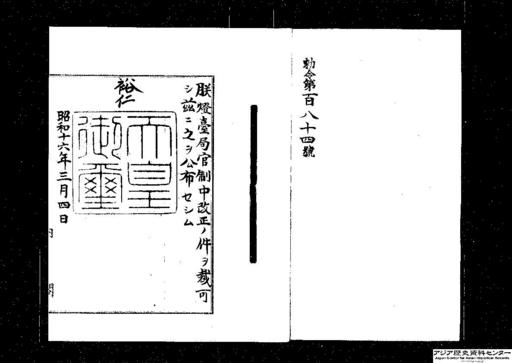 勅令第百八十四號
朕燈臺局官制中改正ノ件ヲ裁可
シ茲ニ之ヲ公布セシム
裕仁
天皇御璽
昭和十六年三月四日
内閣
アジア歴史資料センター
Japan Center for Asian Historical Records